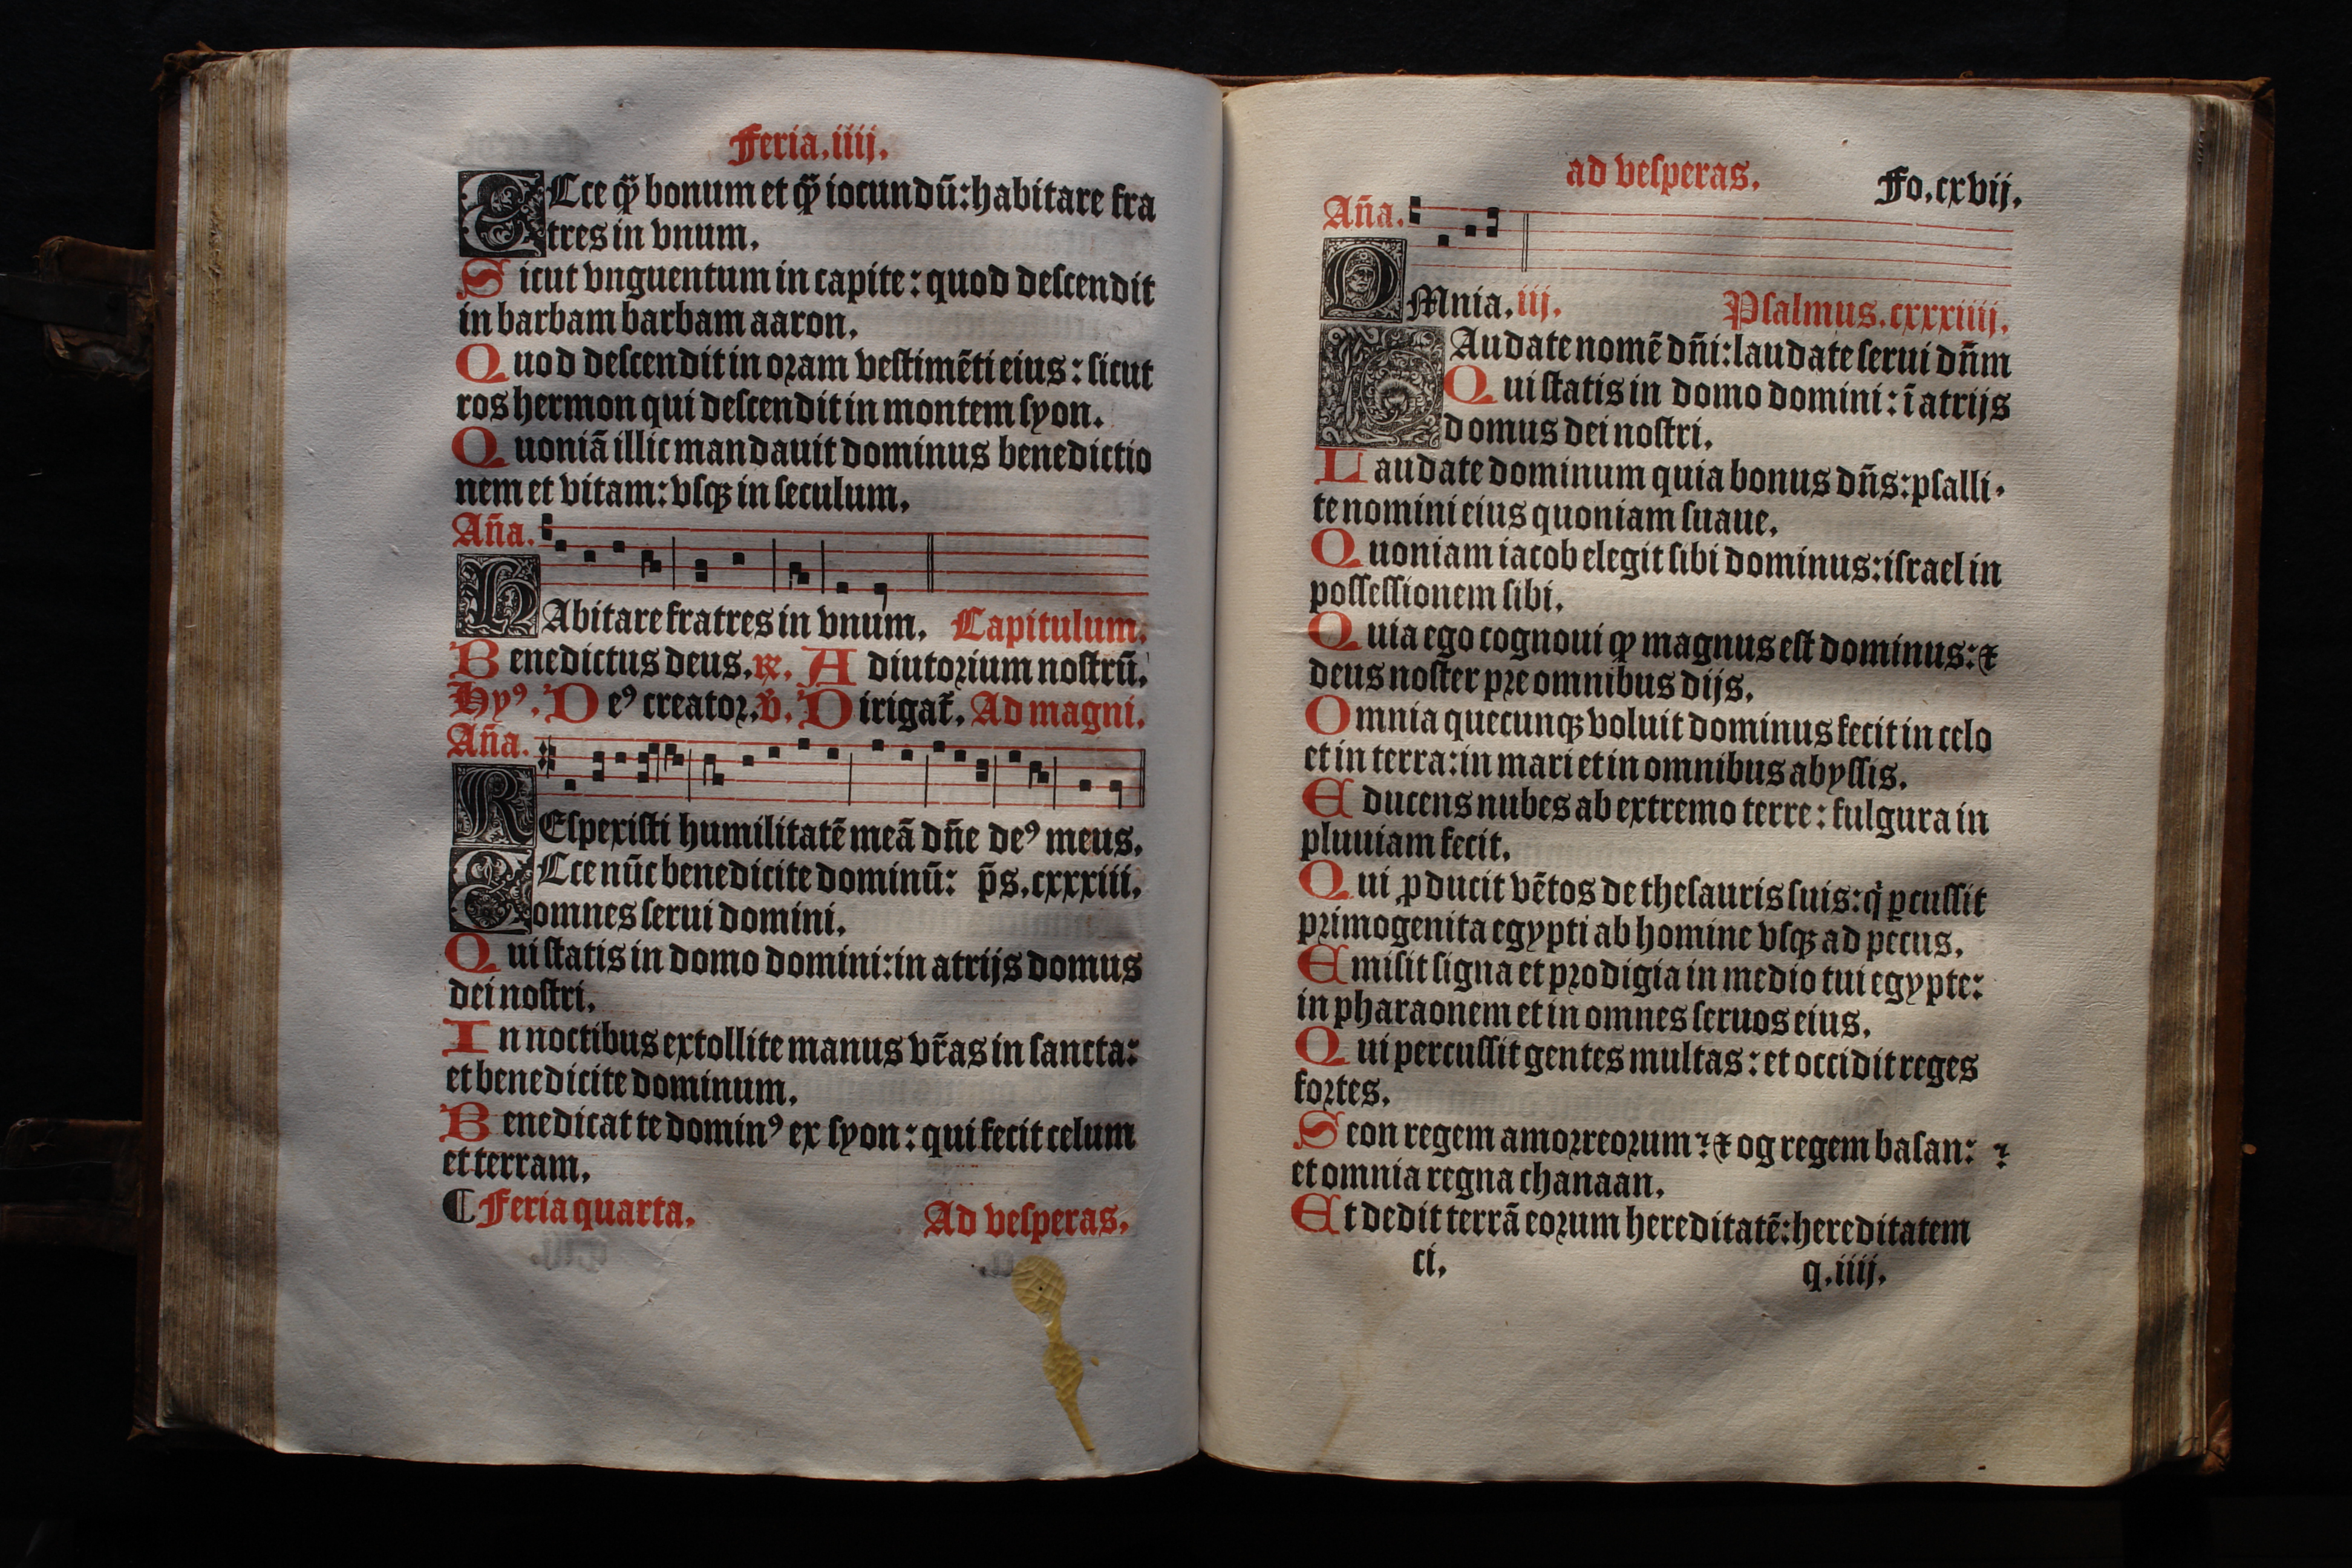 Feria.iiij.
ECce qȝ̄ bonum et qȝ̄ iocundū: habitare fra
tres in vnum.
Sicut vnguentum in capite: quod deſcendit
in barbam barbam aaron.
Quod deſcendit in oꝛam veſtimēti eius: ſicut
ros hermon qui deſcendit in montem ſyon.
Quoniā illic mandauit dominus benedictio
nem et vitam: vſqꝫ in ſeculum.
Aña.
HAbitare fratres in vnum. Capitulum.
Benedictus deus. ℟. Adiutoꝛium noſtrū.
Hyꝰ. Deꝰ creatoꝛ. ℣. Dirigat̃. Ad magni.
Aña.
REſpexiſti humilitatē meā dñe deꝰ meus.
ECce nūc benedicite dominū: p̄s.cxxxiii.
omnes ſerui domini.
Qui ſtatis in domo domini: in atrijs domus
dei noſtri.
In noctibus extollite manus vr̃as in ſancta:
et benedicite dominum.
Benedicat te dominꝰ ex ſyon: qui fecit celum
et terram.
¶ Feria quarta. Ad veſperas.
ad veſperas. Fo.cxvij.
Aña.
OMnia.iij. Pſalmus.cxxxiiij.
LAudate nomē dñi: laudate ſerui dñm
Qui ſtatis in domo domini: ī atrijs
domus dei noſtri.
Laudate dominum quia bonus dñs: pſalli-
te nomini eius quoniam ſuaue.
Quoniam iacob elegit ſibi dominus: iſrael in
poſſeſſionem ſibi.
Quia ego cognoui ꝙ magnus eſt dominus: ⁊
deus noſter pꝛe omnibus dijs.
Omnia quecunqꝫ voluit dominus fecit in celo
et in terra: in mari et in omnibus abyſſis.
Educens nubes ab extremo terre: fulgura in
pluuiam fecit.
Qui ꝓducit vētos de theſauris ſuis: q̇ ꝑcuſſit
pꝛimogenita egypti ab homine vſqꝫ ad pecus.
Emiſit ſigna et pꝛodigia in medio tui egypte:
in pharaonem et in omnes ſeruos eius.
Qui percuſſit gentes multas: et occidit reges
foꝛtes.
Seon regem amoꝛreoꝛum: ⁊ og regem baſan: ⁊
et omnia regna chanaan.
Et dedit terrā eoꝛum hereditatē: hereditatem
ci. q.iiij.